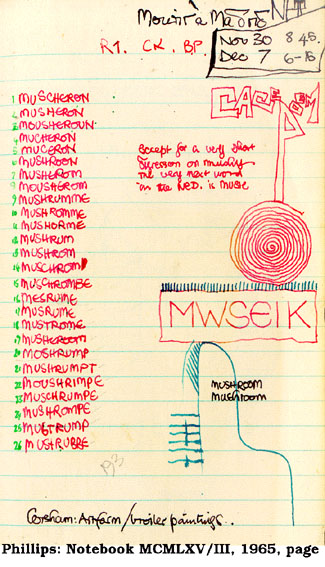 NFT
Nov 30 8 45.
Dec 7 6-15
R1. CK. B.P.
1 MUSCHERON
2 MUSHERON
3 MOUSHEROUN
4 MUCHERON
5 MUCERON
6 MUSHROON
7 MUSHEROM
8 MOUSHEROM
9 MUSHRUMME
10 MUSHROMME
11 MUSHORME
12 MUSHRUM
13 MUSHROM
14 MUSCHROMP
15 MUSCHROMBE
16 MESRUME
17 MUSRUME
18 MUSTROME
19 MUSHEROOM
20 MOSHRUMP
21 MUSHRUMPT
22 MOUSHRIMPE
23 MUSCHRUMPE
24 MUSHROMPE
25 MUSTRUMP
26 MUSTRUBBE
Except for a very short
digression on mushy
the very next word
in the NED. is MUSIC
MWSEIK
MUSHROOM
MUSHROOM
Corsham: Artfarm/broiler paintings..
Phillips: Notebook MCMLXV/III, 1965, page